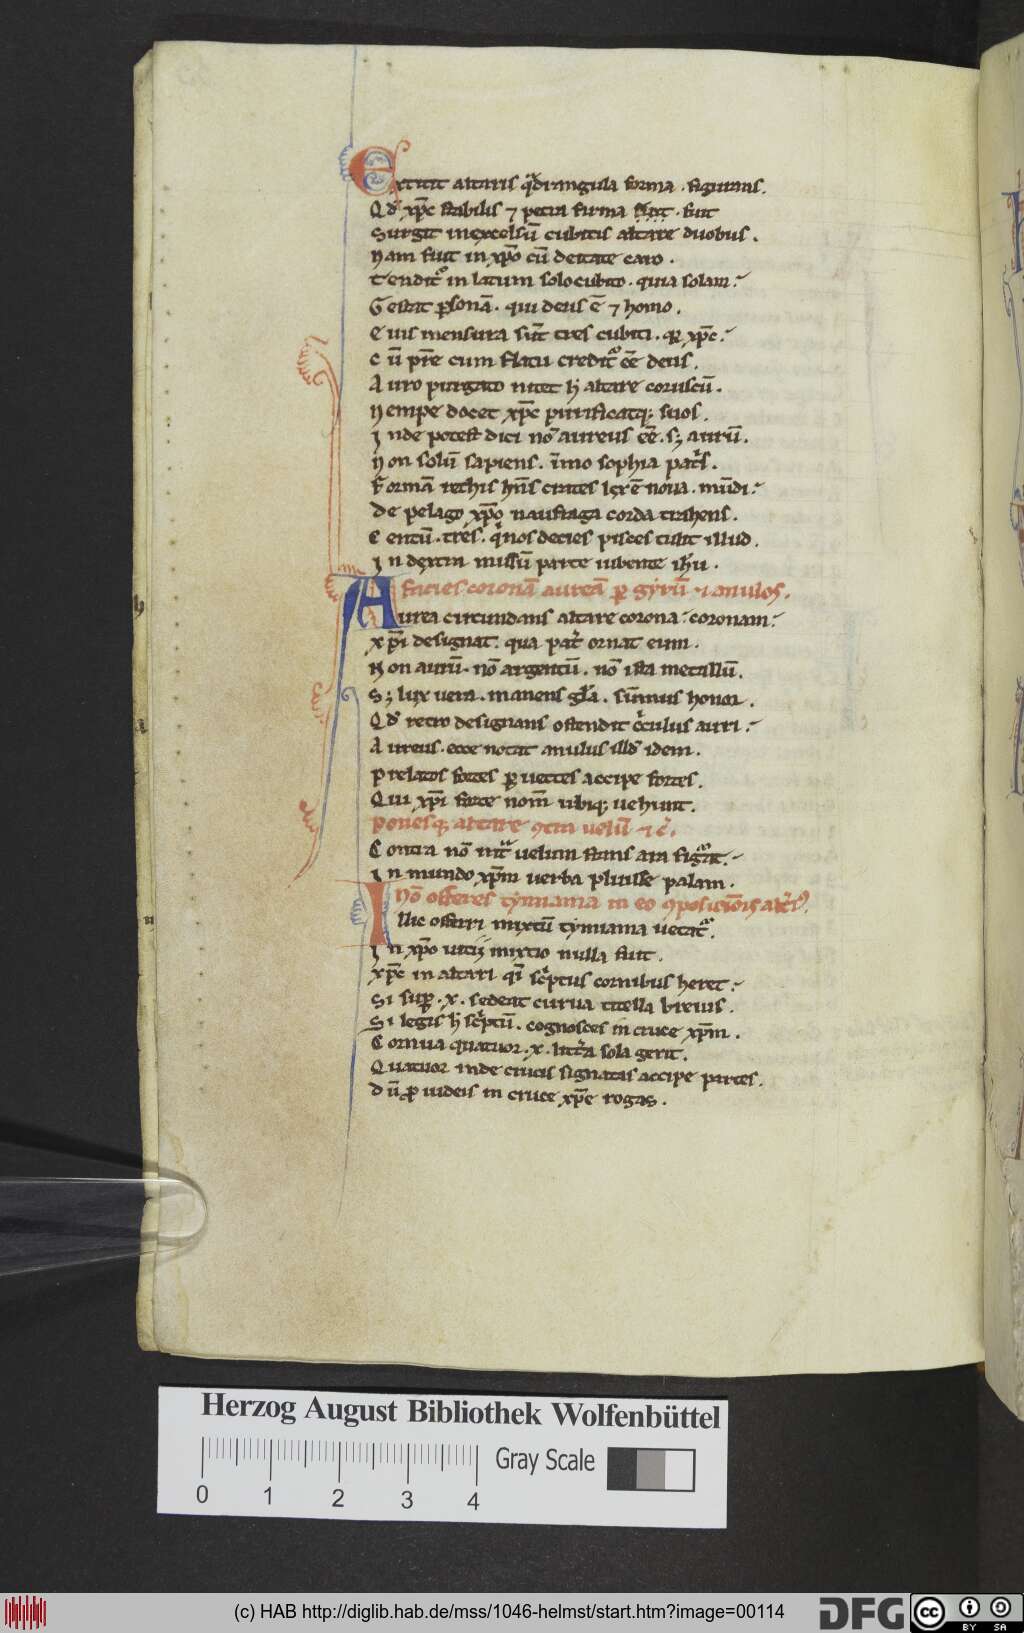 Extitit altaris q̄drangula forma . figurans.
Qđ xp̄c stabilis ⁊ petra firma fuit
Surgit in excelsū cubitis altare duobus .
Nam fuit in xp̄o cū deitate caro .
Tendit᷒ in latum solo cubito . quia solam :
Gestat ꝑsonā . qui deus ē ⁊ homo .
Eius mensura sūt tres cubiti . xp̄c :
Cū pr̄e cum flatu credit᷒ ēe deus .
Auro purgato nitet h altare coruscū .
Nempe docet xp̄c purificatq; suos .
Inde potest dici nō aureus ēe . sꝫ aurū .
Non solū sapiens . īmo sophia pat̄s .
Formā rethis hn̄s crates nova . mūdi :
De pelago xp̄o naufraga corda trahens .
Centū . tres . q̄nos decies pisces tulit illud .
In dextra missū parte iubente ih̄u .
A facies coronā aureā ꝑ gyrū ⁊ anulos .
Aurea circundans altare corona : coronam :
xp̄i designat . qua pat̄ ornat eum .
Non aurū . nō argentū . nō ista metallū .
Sꝫ lux vera . manens gl̄a . sūmus honor .
Qđ retro designans ostendit c̄culus auri :
Aureus . ecce notat anulus illđ idem .
Prelatos fortes ꝑ uectes accipe fortes .
Qui xp̄i forte nom̄ ubiq; uehunt .
Ponesq; altare ꝯtra uelū ⁊ c̄ .
Contra nō int̄ uelum stans ara figur̄at :
In mundo xp̄m uerba pluisse palam .
Nō offeres tymiama in eo ꝯposicionis alt̄iꝰ .
Illic offerri mixtū tymiama uetat᷒ .
In xp̄o uitii mixtio nulla fuit .
xp̄c in altari sc̄ptus cornibus heret :
Si suꝑ . x . sedeat curua titella breuis .
Si legis h sc̄ptū . cognosces in cruce xp̄m .
Cornua quatuor . x . litt̄a sola gerit .
Quatuor inde crucis signatas accipe partes .
Dū ꝓ uideis in cruce xp̄e rogas .
Herzog August Bibliothek Wolfenbüttel
Gray Scale
0 1 2 3 4
(c) HAB http://diglib.hab.de/mss/1046-helmst/start.htm?image=00114
DFG
cc BY SA